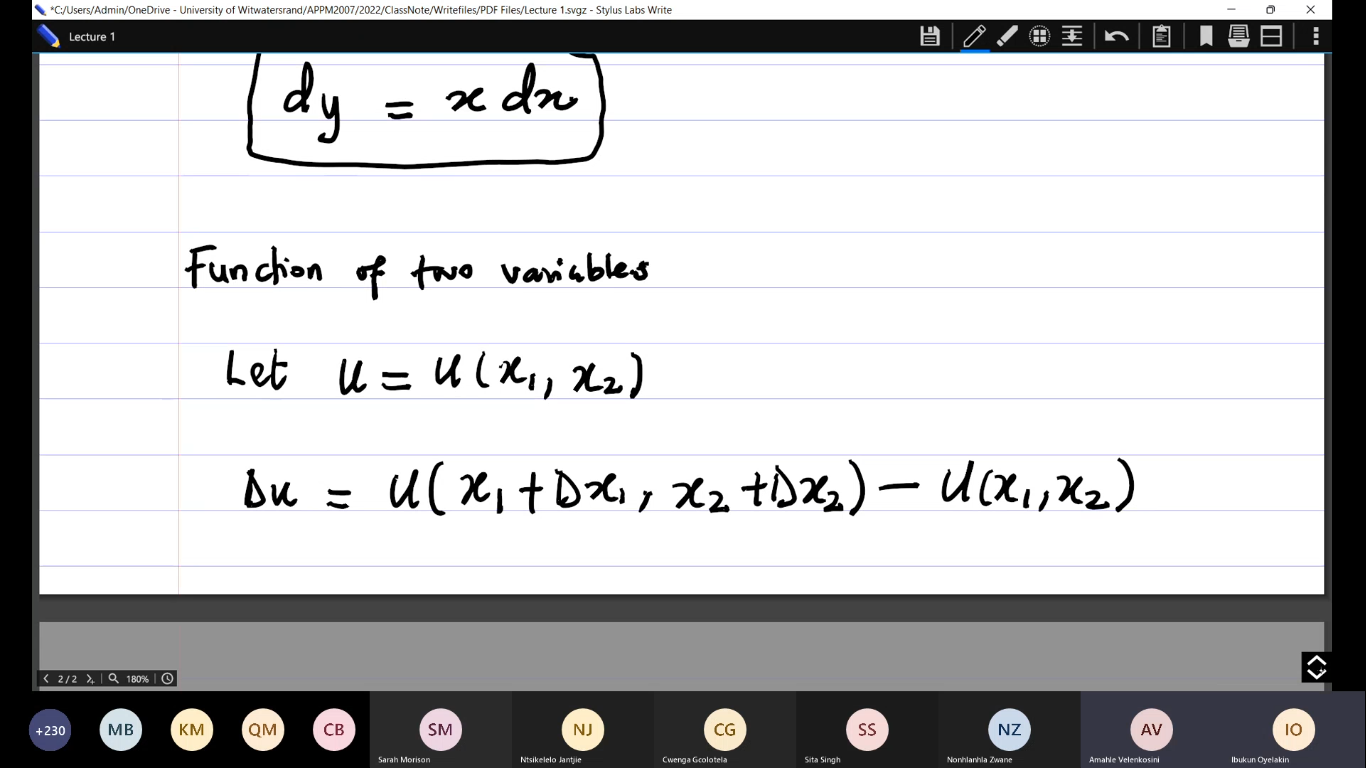 *C:/Users/Admin/OneDrive - University of Witwatersrand/APPM2007/2022/ClassNote/Writefiles/PDF Files/Lecture 1.svgz - Stylus Labs Write
Lecture 1
dy = x dx
Function of two variables
Let u = u(x₁, x₂)
Δu = u(x₁+Δx₁, x₂+Δx₂) − u(x₁,x₂)
2/2 180%
+230 MB KM QM CB SM NJ CG SS NZ AV IO
Sarah Morison Ntsikelelo Jantjie Cwenga Gcolotela Sita Singh Nonhlanhla Zwane Amahle Velenkosini Ibukun Oyelakin